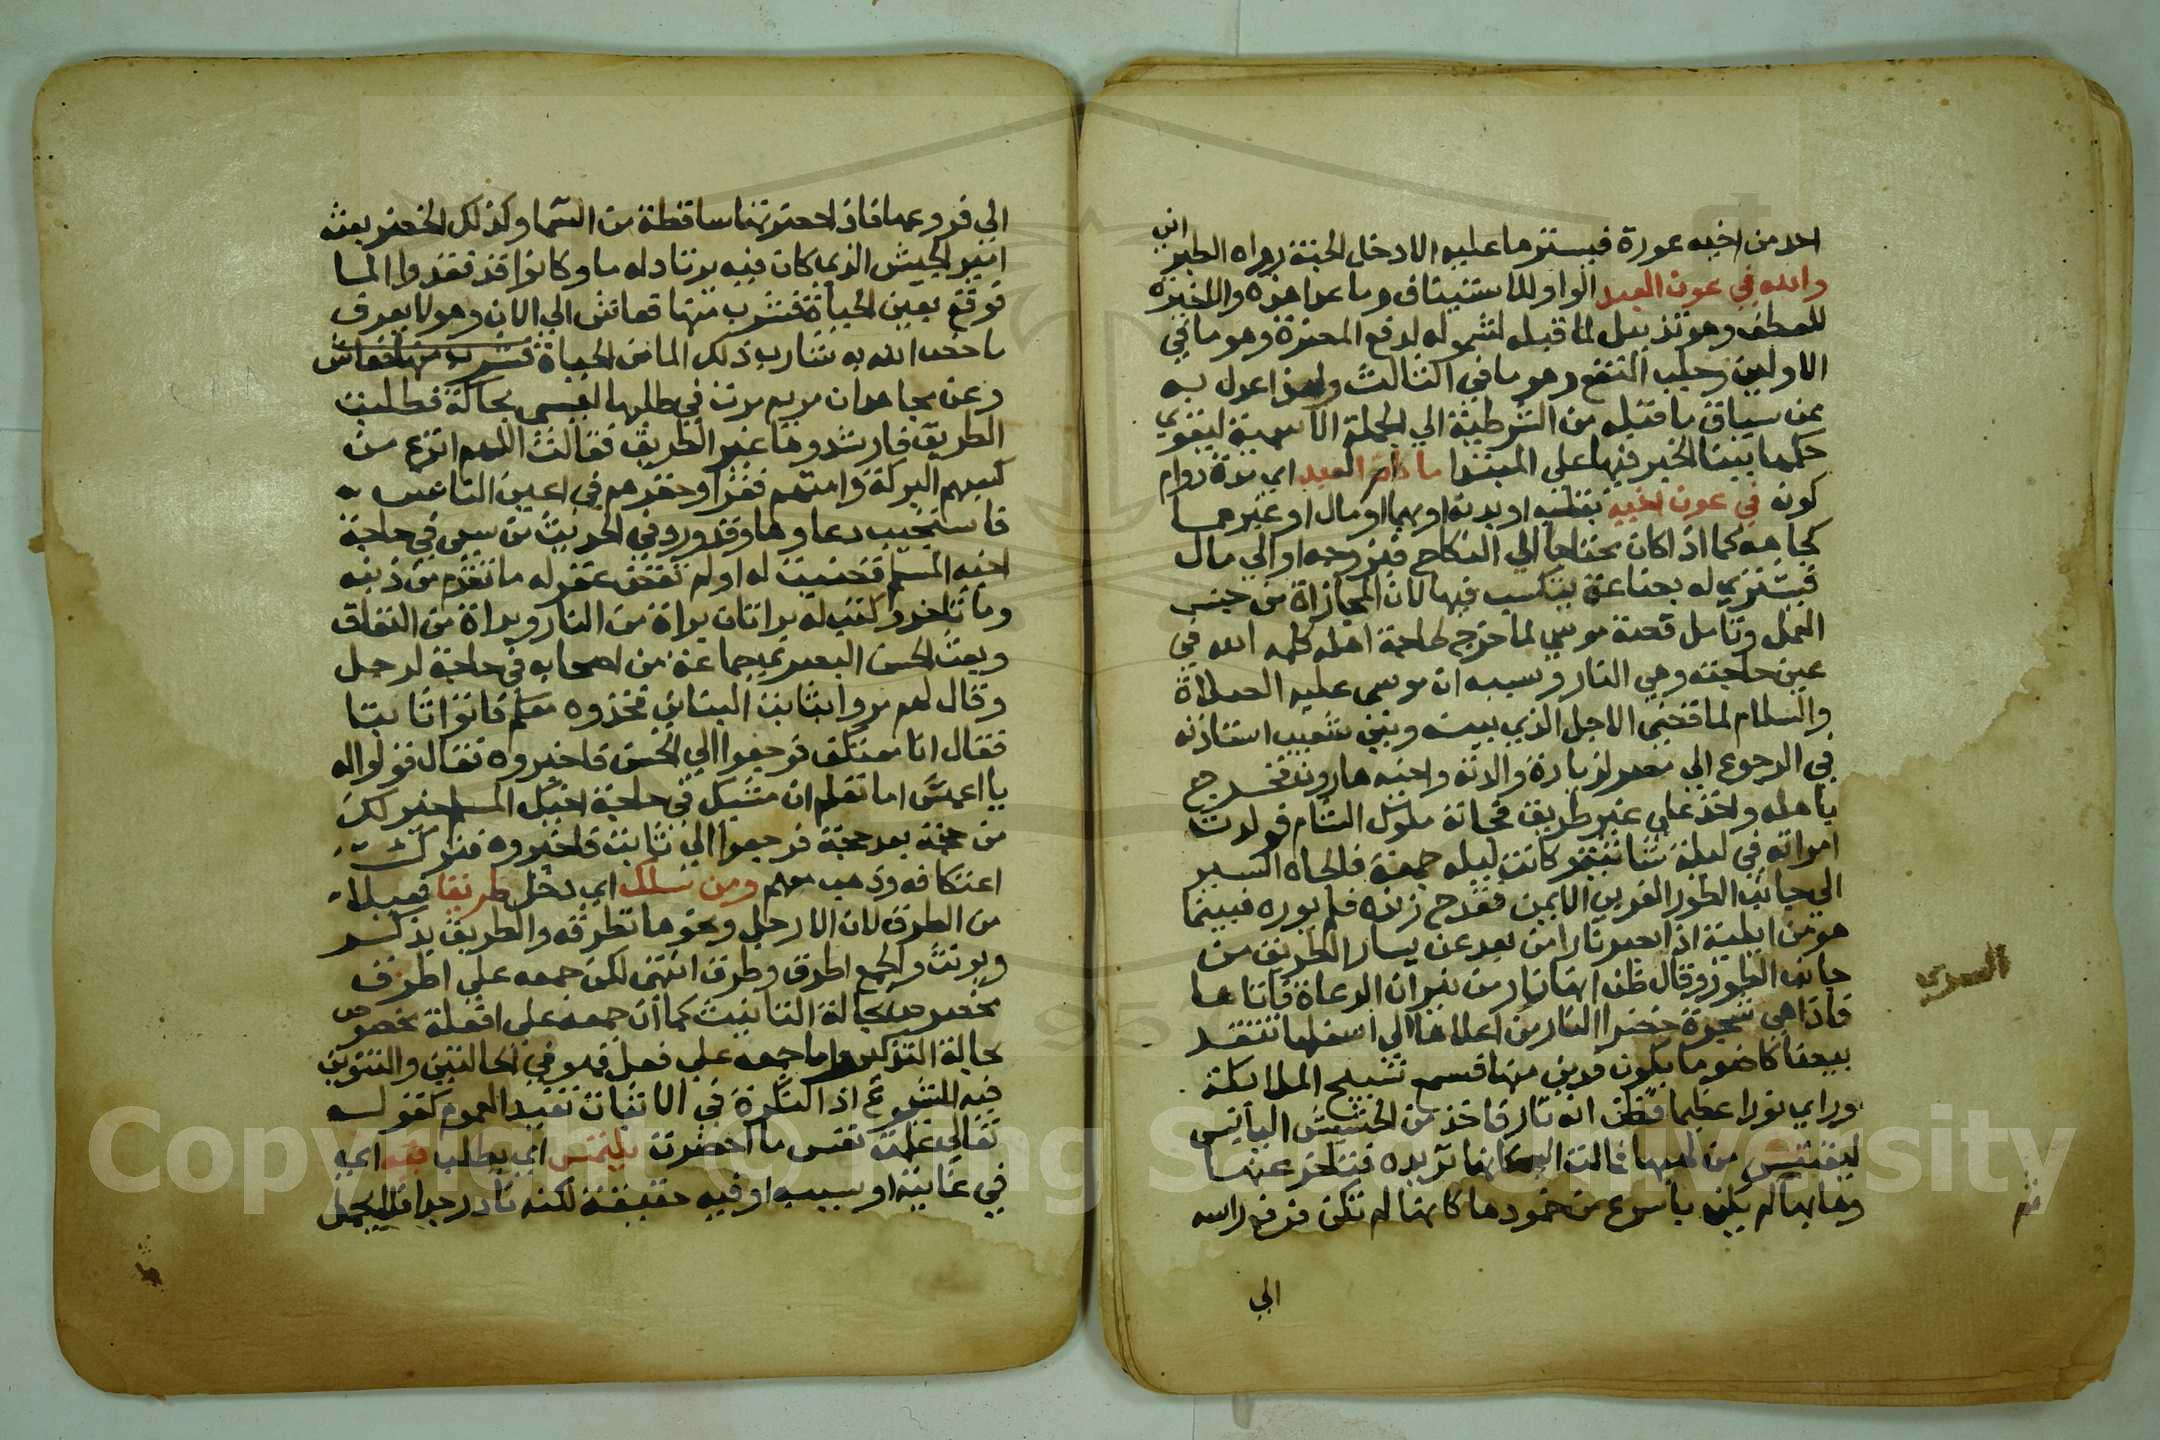 احد من اخيه عورة فيسترها عليه الا دخل الجنة رواه الطبراني
والله في عون العبد الواو للاستيناف وما عدا هذه والاخيرة
للعطف وهو تذييل لما قبله لشموله لدفع المضرة وهو ما في
الاولين وجلب النفع وهو ما في الثالث ولهذا عدل به
عن سياق ما قبله من الشرطية الى الجملة الاسمية ليقوي
حكمها ببنا الخبر فيها على المبتدا ما كان العبد اي مدة دوام
كونه في عون اخيه بقلبه او بدنه او بهما او مال او غيرهما
كجاهه كما اذا كان محتاجا الي النكاح فيزوجه او الي مال
فيشتري له بضاعة يتكسب فيها لان المجازاة من جنس
العمل وتامل قصة موسي لما خرج لحاجة اهله كلمه الله في
عين حاجته وهي النار وسببه ان موسى عليه الصلاة
والسلام لما قضى الاجل الذي بينه وبين شعيب استاذنه
في الرجوع الي مصر لزيارة والدته واخيه هارون فخرج
باهله واخذ على غير طريق مخافة ملوك الشام فولدت
امراته في ليلة شاتية كانت ليلة جمعة فالجاه السير
الي جانب الطور الغربي الايمن فقدح زنده فلم يوره فبينما
هو من ابطية اذ ابصر نارا من بعد عن يسار الطريق من
جانب الطور وقال ظن انها نار من نيران الرعاة فاتاها
فاذا هي شجرة خضرا النار من اعلاها الي اسفلها تتقد
بيضا كاضو ما يكون فدني منها فسمع تسبيح الملايكة
وراي نورا عظيما فظن انه نار فاخذ من الحشيش اليابس
ليقتبس من لهبها فمالت اليه كانها تريده فتاخر عنها
وهابها لم يكن باسرع من خمودها كانها لم تكن فرفع راسه
الي
الي فروعها فاذا خضرتها ساطعة من السما وكذلك الخضر بعثه
امير الجيش الذي كان فيه يرتاد له ما وكانوا قد فقدوا الما
فوقع بعين الحياة فشرب منها فعاش الي الان وهو لا يعرف
ما خص الله به شارب ذلك الما من الحياة فشرب منها فعاش
وعن مجاهد ان مريم مرت في طلبها لعيسى بحاكة فطلبت
الطريق فارشدوها غير الطريق فقالت اللهم انزع من
كسبهم البركة وامتهم فقرا وحقرهم في اعين الناس
فاستجيب دعاوها وقد ورد في الحديث من سعى في حاجة
اخيه المسلم قضيت له او لم تقض غفر له ما تقدم من ذنبه
وما تاخر وكتب له براتان براة من النار وبراة من النفاق
وبعث الحسن البصري جماعة من اصحابه في حاجة لرجل
وقال لهم مروا بثابت البناني فخذوه معكم فاتوا ثابتا
فقال انا معتكف فرجعوا الي الحسن فاخبروه فقال قولوا له
يا اعمش اما تعلم ان مشيك في حاجة اخيك المسلم خير لك
من حجة بعد حجة فرجعوا الي ثابت فاخبروه فترك
اعتكافه وذهب معهم ومن سلك اي دخل طريقا فعيلا
من الطرق لان الارجل ونحوها تطرقه والطريق يذكر
ويونث والجمع اطرق وطرق انتهى لكن جمعه علي اطرق
مخصوص بحالة التانيث كما ان جمعه على افعلة مخصوص
بحالة التذكير واما جمعه علي فعل فهو في الحالتين والتنوين
فيه للشيوع اذ النكرة في الاثبات تفيد العموم كقوله
تعالي علمت نفس ما احضرت يلتمس اي يطلب فيه اي
في غايته او سببه او فيه حقيقة لكنه نادر جدا